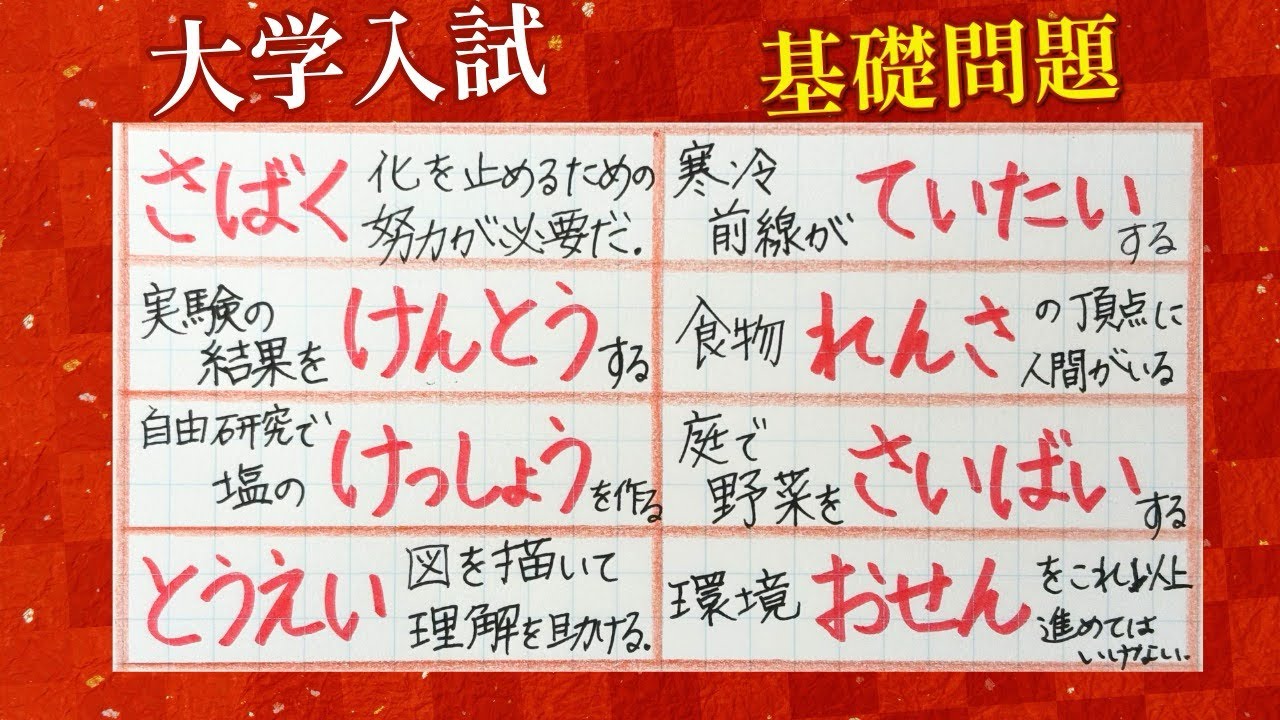 大学入試
基礎問題
さばく
化を止めるための
努力が必要だ.
寒冷
前線が
ていたい
する
実験の
結果を
けんとう
する
食物
れんさ
の頂点に
人間がいる
自由研究で
塩の
けっしょう
を作る
庭で
野菜を
さいばい
する
とうえい
図を描いて
理解を助ける.
環境
おせん
をこれ以上
進めては
いけない.